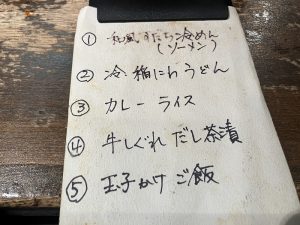 ① 和風すだち冷めん
(ソーメン)
② 冷稲にわうどん
③ カレーライス
④ 牛しぐれだし茶漬
⑤ 玉子かけご飯